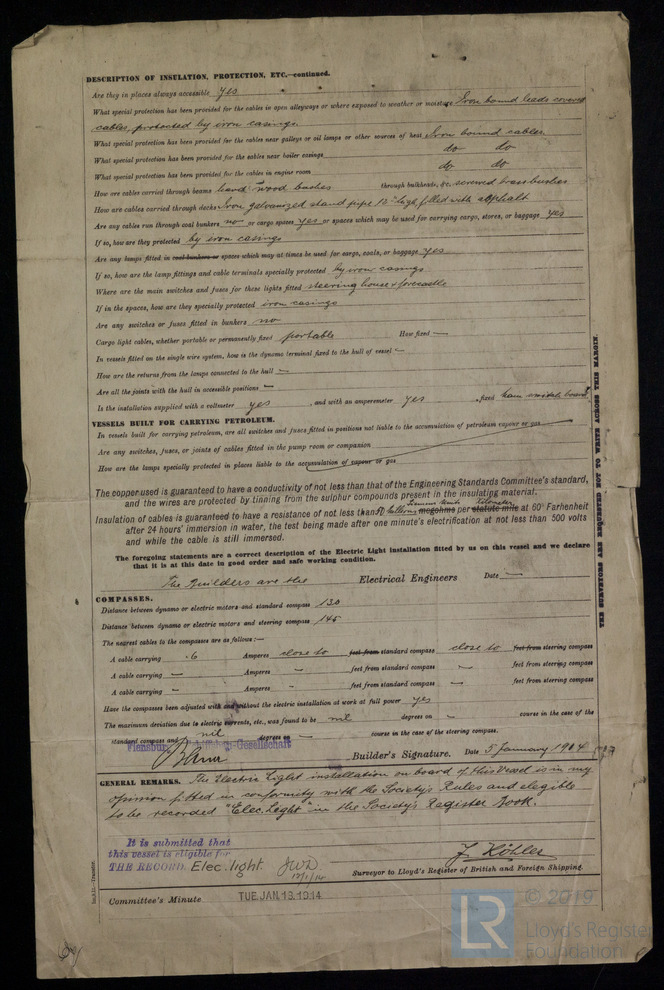 DESCRIPTION OF INSULATION, PROTECTION, ETC.—continued.
Are they in places always accessible yes
What special protection has been provided for the cables in open alleyways or where exposed to weather or moisture Iron bound leads covered
cables, protected by iron casings.
What special protection has been provided for the cables near galleys or oil lamps or other sources of heat Iron bound cables
What special protection has been provided for the cables near boiler casings do do
What special protection has been provided for the cables in engine room do do
How are cables carried through beams hard wood bushes through bulkheads, &c. screwed brass bushes
How are cables carried through decks Iron galvanized stand pipe 12" high, filled with asphalt
Are any cables run through coal bunkers no or cargo spaces yes or spaces which may be used for carrying cargo, stores, or baggage yes
If so, how are they protected by iron casings
Are any lamps fitted in coal bunkers or spaces which may at times be used for cargo, coals, or baggage yes
If so, how are the lamp fittings and cable terminals specially protected by iron casings
Where are the main switches and fuses for these lights fitted steering house & forecastle
If in the spaces, how are they specially protected iron casings
Are any switches or fuses fitted in bunkers no
Cargo light cables, whether portable or permanently fixed portable How fixed —
In vessels fitted on the single wire system, how is the dynamo terminal fixed to the hull of vessel —
How are the returns from the lamps connected to the hull —
Are all the joints with the hull in accessible positions —
Is the installation supplied with a voltmeter yes , and with an amperemeter yes , fixed switch board
VESSELS BUILT FOR CARRYING PETROLEUM.
In vessels built for carrying petroleum, are all switches and fuses fitted in positions not liable to the accumulation of petroleum vapour or gas
Are any switches, fuses, or joints of cables fitted in the pump room or companion
How are the lamps specially protected in places liable to the accumulation of vapour or gas
The copper used is guaranteed to have a conductivity of not less than that of the Engineering Standards Committee's standard,
and the wires are protected by tinning from the sulphur compounds present in the insulating material.
Insulation of cables is guaranteed to have a resistance of not less than megohms per statute mile Kilometer at 60° Farhenheit
after 24 hours' immersion in water, the test being made after one minute's electrification at not less than 500 volts
and while the cable is still immersed.
The foregoing statements are a correct description of the Electric Light installation fitted by us on this vessel and we declare
that it is at this date in good order and safe working condition.
The Builders are the Electrical Engineers Date —
COMPASSES.
Distance between dynamo or electric motors and standard compass 130
Distance between dynamo or electric motors and steering compass 145
The nearest cables to the compasses are as follows:—
A cable carrying .6 Amperes close to feet from standard compass close to feet from steering compass
A cable carrying — Amperes — feet from standard compass — feet from steering compass
A cable carrying — Amperes — feet from standard compass — feet from steering compass
Have the compasses been adjusted with and without the electric installation at work at full power yes
The maximum deviation due to electric currents, etc., was found to be nil degrees on — course in the case of the
standard compass and nil degrees on — course in the case of the steering compass.
Flensburger Schiffsbau-Gesellschaft
Builder's Signature. Date 5 January 1914
GENERAL REMARKS. The Electric Light installation on board of this Vessel is in my
opinion fitted in conformity with the Society's Rules and eligible
to be recorded "Elec. Light" in the Society's Register Book.
It is submitted that
this vessel is eligible for
THE RECORD Elec. light. JWD
12/1/14
F. Köhler
Surveyor to Lloyd's Register of British and Foreign Shipping.
Committee's Minute TUE. JAN. 13. 1914
THE SURVEYORS ARE REQUESTED NOT TO WRITE ACROSS THIS MARGIN.
© 2019
LR
Lloyd's Register
Foundation